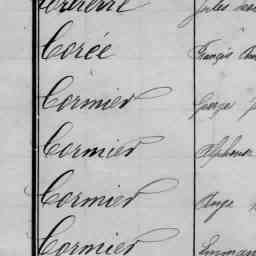 Corée François
Cormier George
Cormier Alphonse
Cormier Ange
Cormier Emman